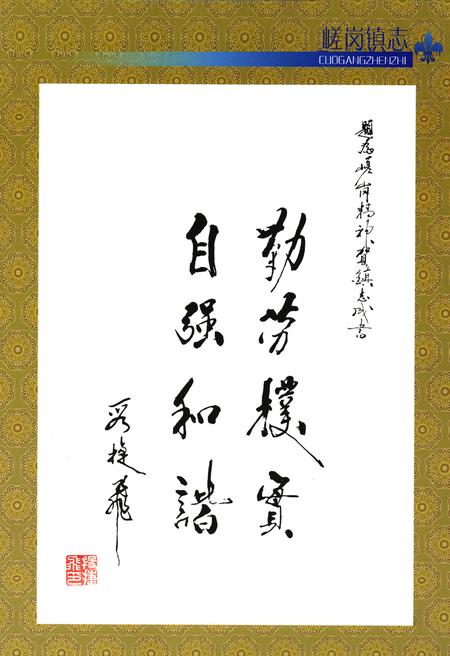 嵯岗镇志
CUOGANGZHENZHI
题为嵯岗精神贺镇志成书
勤劳樸實
自强和諧